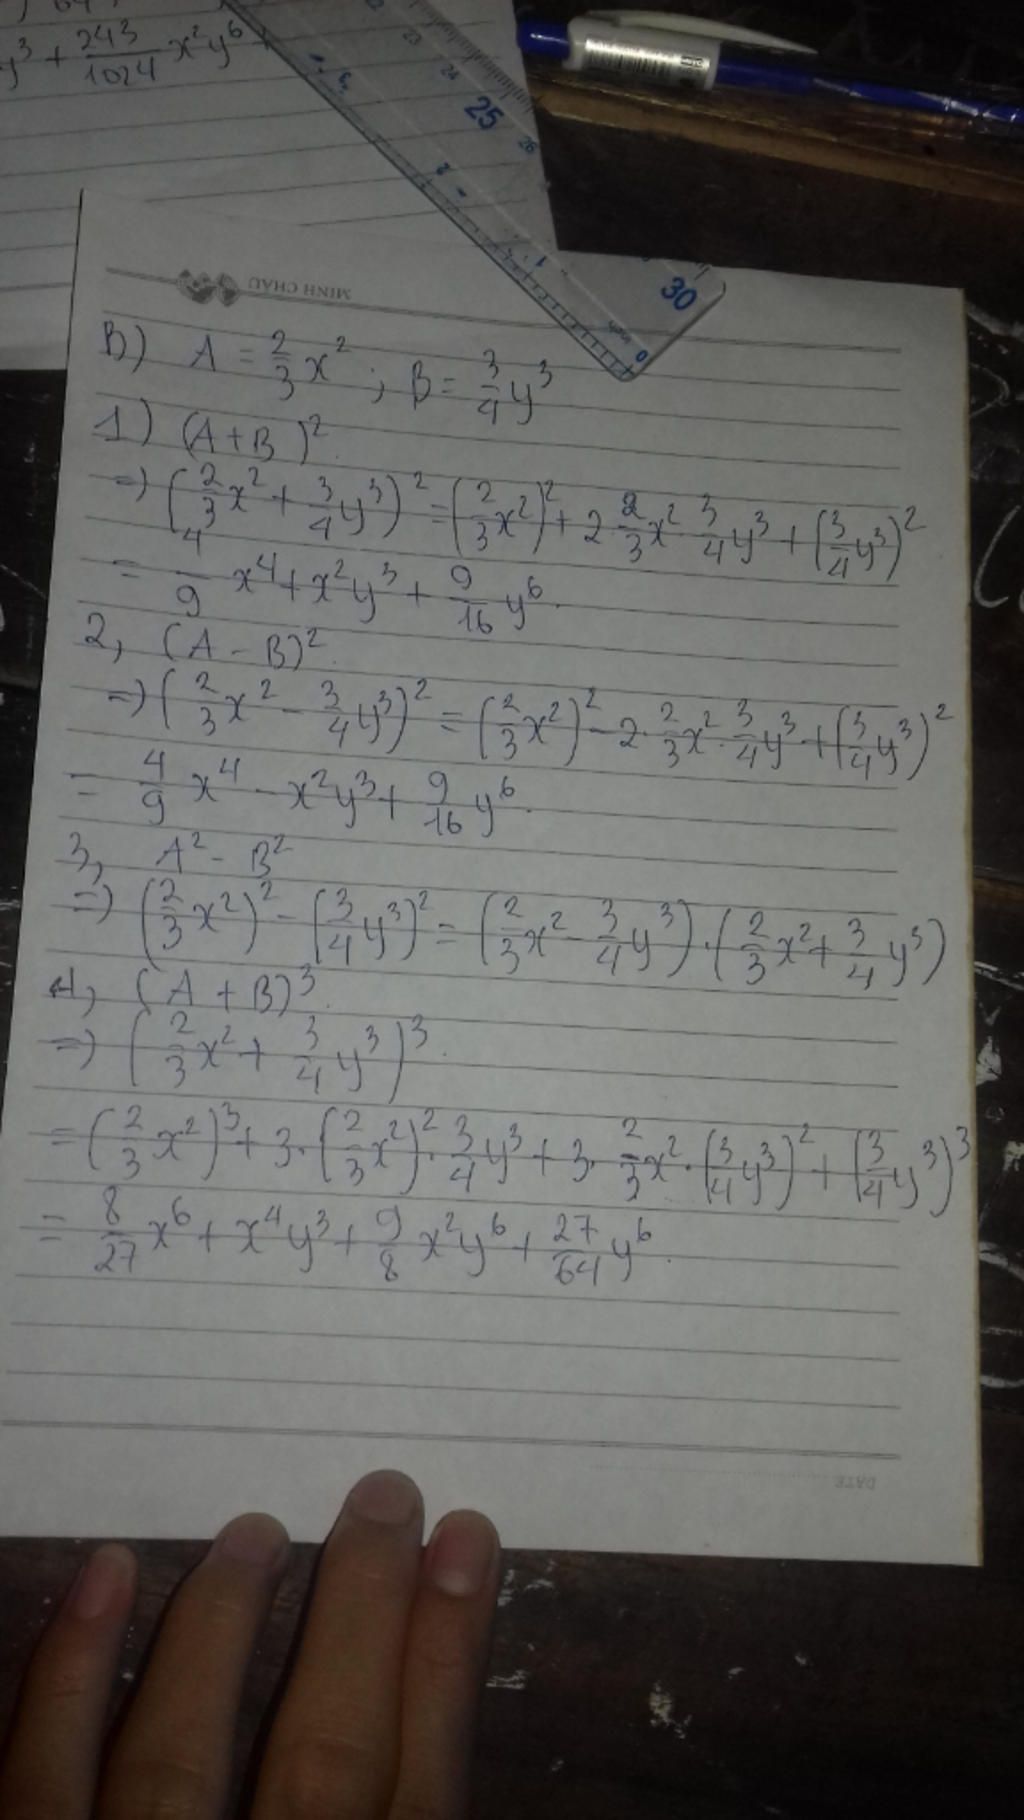 y³ + 243/1024 x²y⁶ +
22
23
24
25
26
30
3
2
1
0
inch
MINH CHÂU
B) A = 2/3 x² ; B = 3/4 y³
1) (A + B)²
=) (2/3 x² + 3/4 y³)² = (2/3 x²)² + 2 2/3 x² 3/4 y³ + (3/4 y³)²
= 4/9 x⁴ + x²y³ + 9/16 y⁶.
2, (A - B)².
=) (2/3 x² - 3/4 y³)² = (2/3 x²)² - 2. 2/3 x². 3/4 y³ + (3/4 y³)²
= 4/9 x⁴ - x²y³ + 9/16 y⁶.
3, A² - B²
=) (2/3 x²)² - (3/4 y³)² = (2/3 x² - 3/4 y³).(2/3 x² + 3/4 y³)
4, (A + B)³.
=) (2/3 x² + 3/4 y³)³.
= (2/3 x²)³ + 3.(2/3 x²)². 3/4 y³ + 3. 2/3 x².(3/4 y³)² + (3/4 y³)³
= 8/27 x⁶ + x⁴y³ + 9/8 x²y⁶ + 27/64 y⁶.
DATE